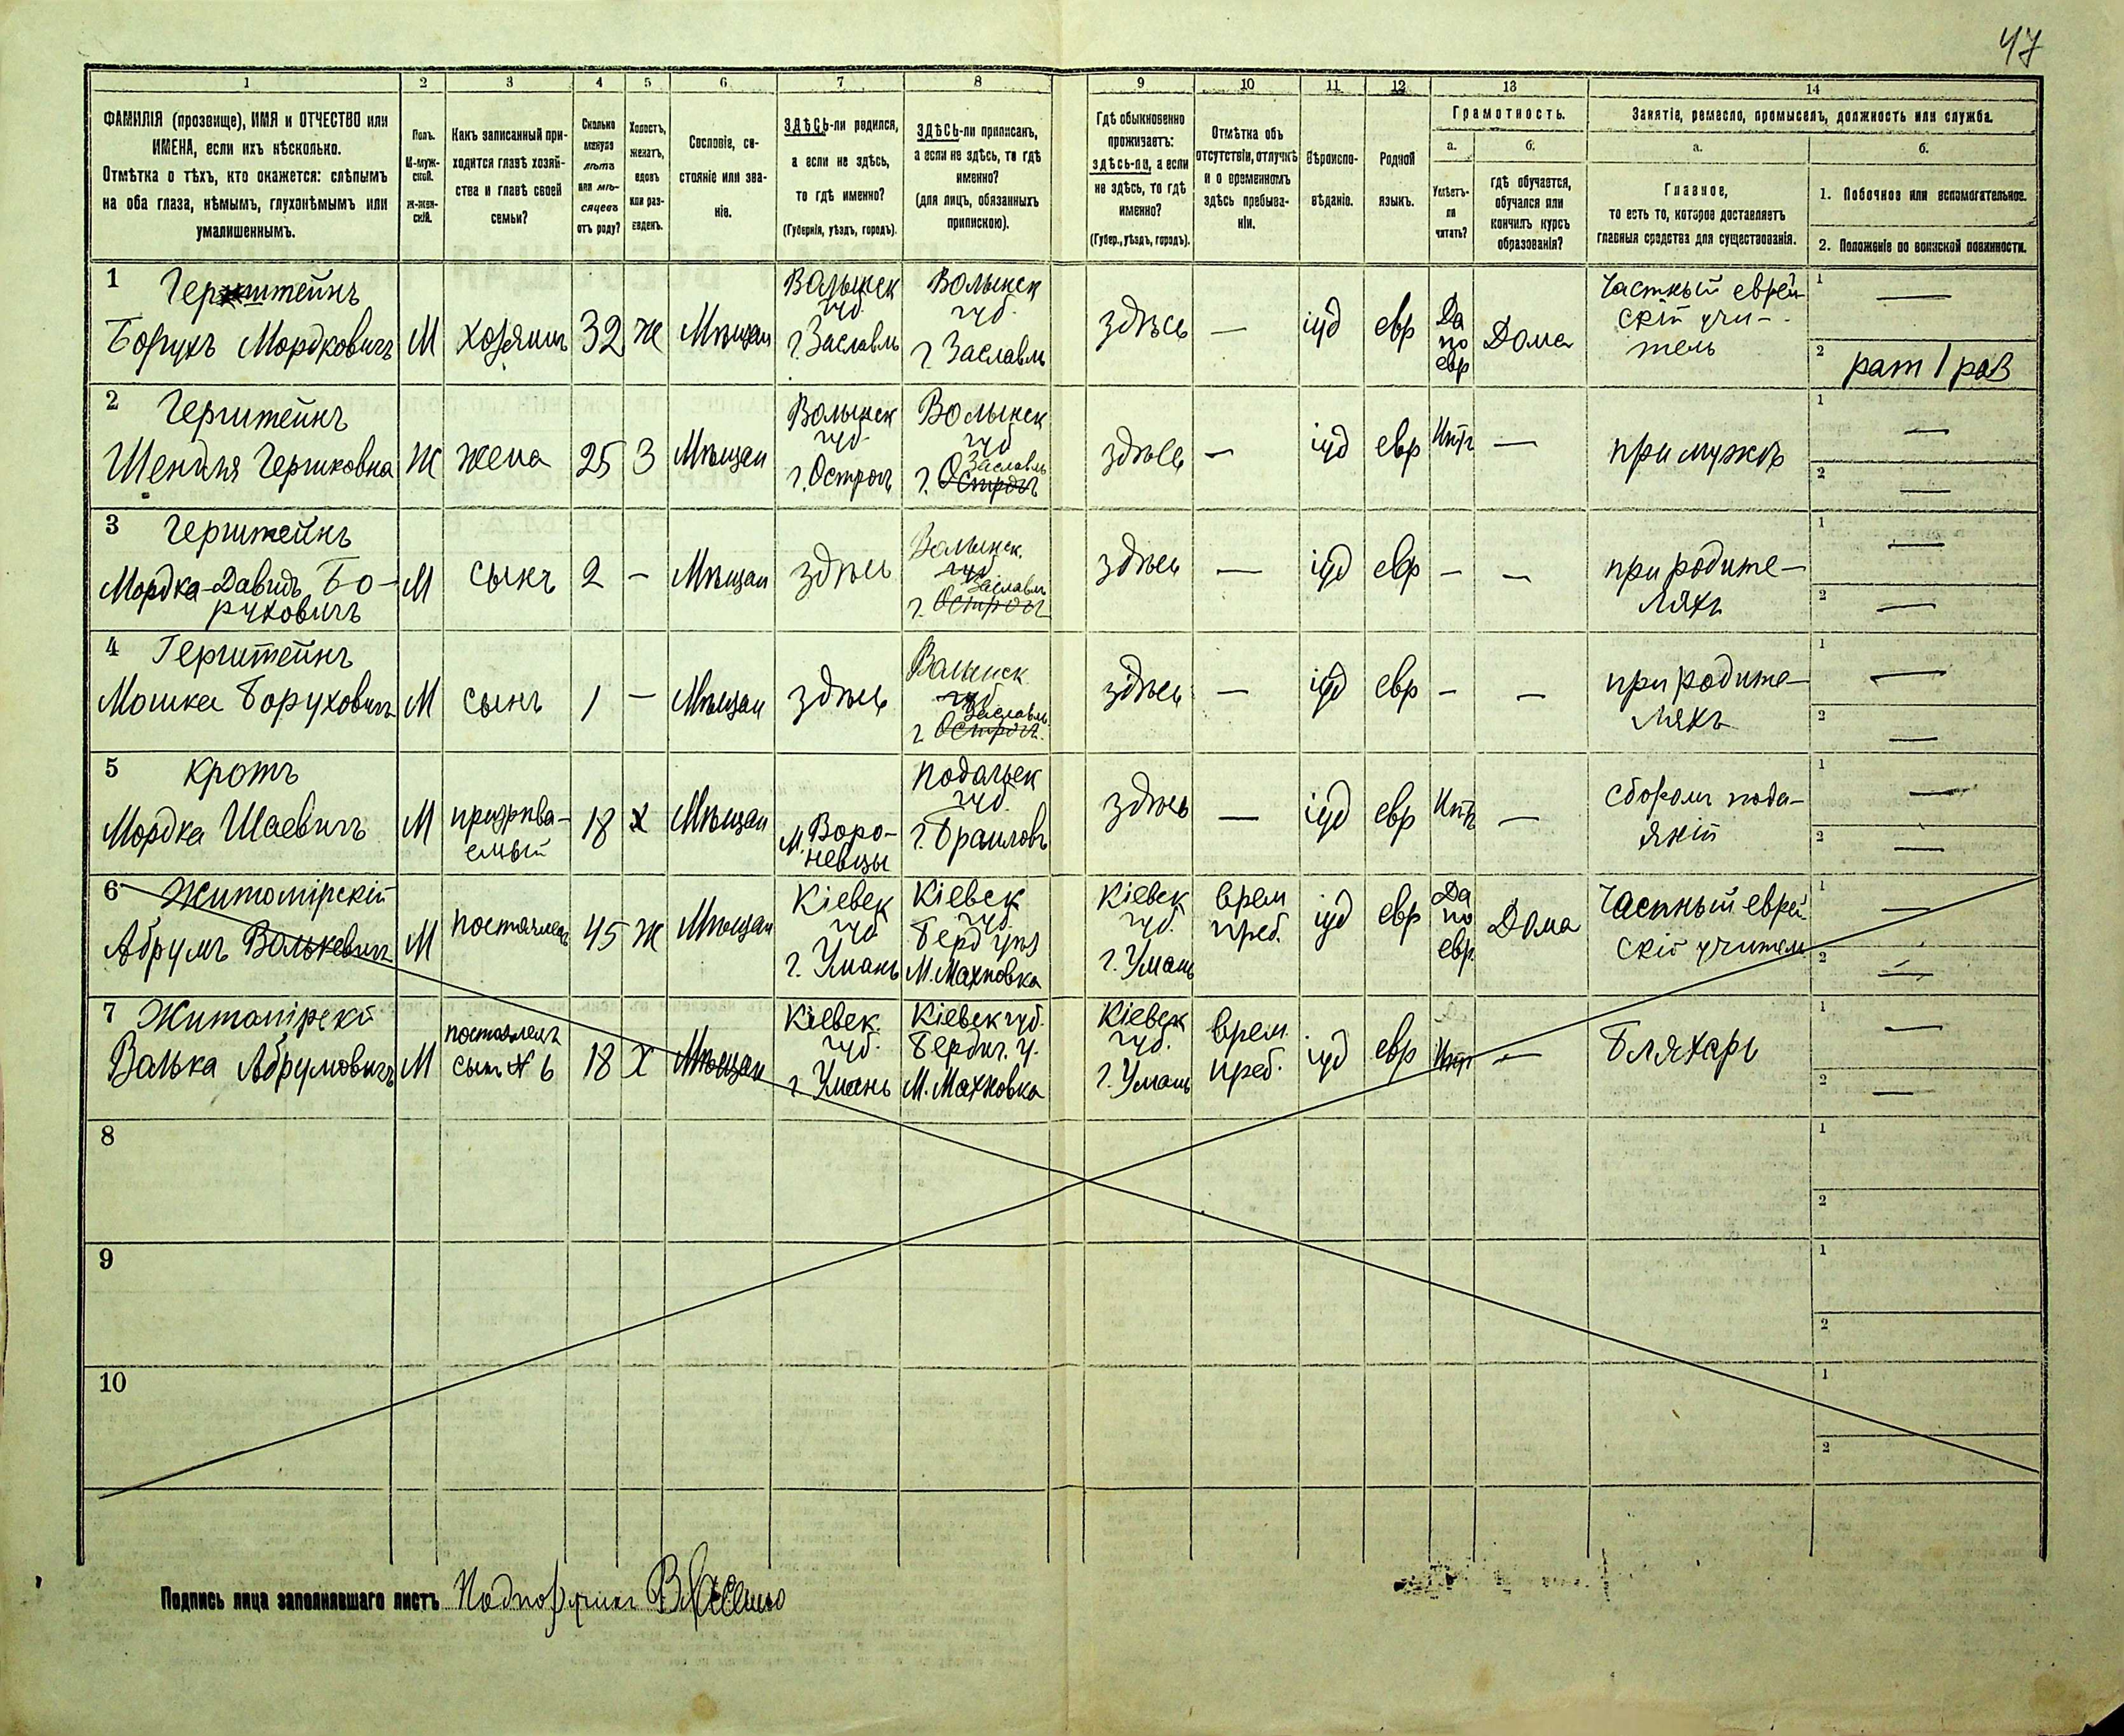 47
1 2 3 4 5 6 7 8 9 10 11 12 13 14
ФАМИЛІЯ (прозвище), ИМЯ и ОТЧЕСТВО или
ИМЕНА, если ихъ нѣсколько.
Отмѣтка о тѣхъ, кто окажется: слѣпымъ
на оба глаза, нѣмымъ, глухонѣмымъ или
умалишеннымъ.
Полъ.
М-муж-
ской.
Ж-жен-
скій.
Какъ записанный при-
ходится главѣ хозяй-
ства и главѣ своей
семьи?
Сколько
минуло
лѣтъ
или мѣ-
сяцевъ
отъ роду?
Холостъ,
женатъ,
вдовъ
или раз-
веденъ.
Сословіе, со-
стояніе или зва-
ніе.
ЗДѢСЬ-ли родился,
а если не здѣсь,
то гдѣ именно?
(Губернія, уѣздъ, городъ).
ЗДѢСЬ-ли приписанъ,
а если не здѣсь, то гдѣ
именно?
(для лицъ, обязанныхъ
припискою).
Гдѣ обыкновенно
проживаетъ:
здѣсь-ли, а если
не здѣсь, то гдѣ
именно?
(Губер., уѣздъ, городъ).
Отмѣтка объ
отсутствіи, отлучкѣ
и о временномъ
здѣсь пребыва-
ніи.
Вѣроиспо-
вѣданіе.
Родной
языкъ.
Грамотность.
а.
Умѣетъ-
ли
читать?
б.
гдѣ обучается,
обучался или
кончилъ курсъ
образованія?
Занятіе, ремесло, промыселъ, должность или служба.
а.
Главное,
то есть то, которое доставляетъ
главныя средства для существованія.
б.
1. Побочное или вспомогательное.
2. Положеніе по воинской повинности.
1 Герштейнъ
Борухъ Мордковичъ
М
хозяинъ
32
ж
Мѣщан
Волынск
губ.
г. Заславль
Волынск
губ.
г. Заславль
здѣсь
—
іуд
евр
Да
по
евр
Дома
Частный еврей-
скій учи-
тель
1 —
2 рат 1 раз
2 Герштейнъ
Шендля Гершковна
Ж
жена
25
З
Мѣщан
Волынск
губ
г. Острог
Волынск
губ
Заславль
г. Острогъ
здѣсь
—
іуд
евр
Нѣтъ
—
при мужѣ
1 —
2 —
3 Герштейнъ
Мордка-Давидъ Бо-
руховичъ
М
сынъ
2
—
Мѣщан
здѣсь
Волынск.
губ.
Заславль
г. Острогъ
здѣсь
—
іуд
евр
—
—
при родите-
ляхъ
1 —
2 —
4 Герштейнъ
Мошка Боруховичъ
М
сынъ
1
—
Мѣщан
здѣсь
Волынск
губ
Заславль
г. Острогъ.
здѣсь
—
іуд
евр
—
—
при родите-
ляхъ
1 —
2 —
5 Кротъ
Мордка Шаевичъ
М
призрѣва-
емый
18
х
Мѣщан
м. Воро-
невцы
Подольск
губ.
г. Браиловъ
здѣсь
—
іуд
евр
Нѣтъ
—
сборомъ пода-
яній
1 —
2 —
6 Житомірскій
Абрумъ Волькевич
М
постоялец
45
ж
Мѣщан
Кіевск
губ
г. Умань
Кіевск
губ
Берд уѣз
М. Махновка
Кіевск
губ.
г. Умань
врем
преб.
іуд
евр
Да
по
евр.
Дома
Частный еврей
скій учитель
1 —
2 —
7 Житомірскій
Волька Абрумовичъ
М
постоялецъ
сынъ № 6
18
Х
Мѣщан
Кіевск.
губ.
г. Умань
Кіевск губ.
Бердич. у.
М. Махновка
Кіевск
губ.
г. Умань
врем.
преб.
іуд
евр
Нѣт
—
Бляхарь
1 —
2 —
8
1
2
9
1
2
10
1
2
Подпись лица заполнявшаго листъ Подпоручикъ